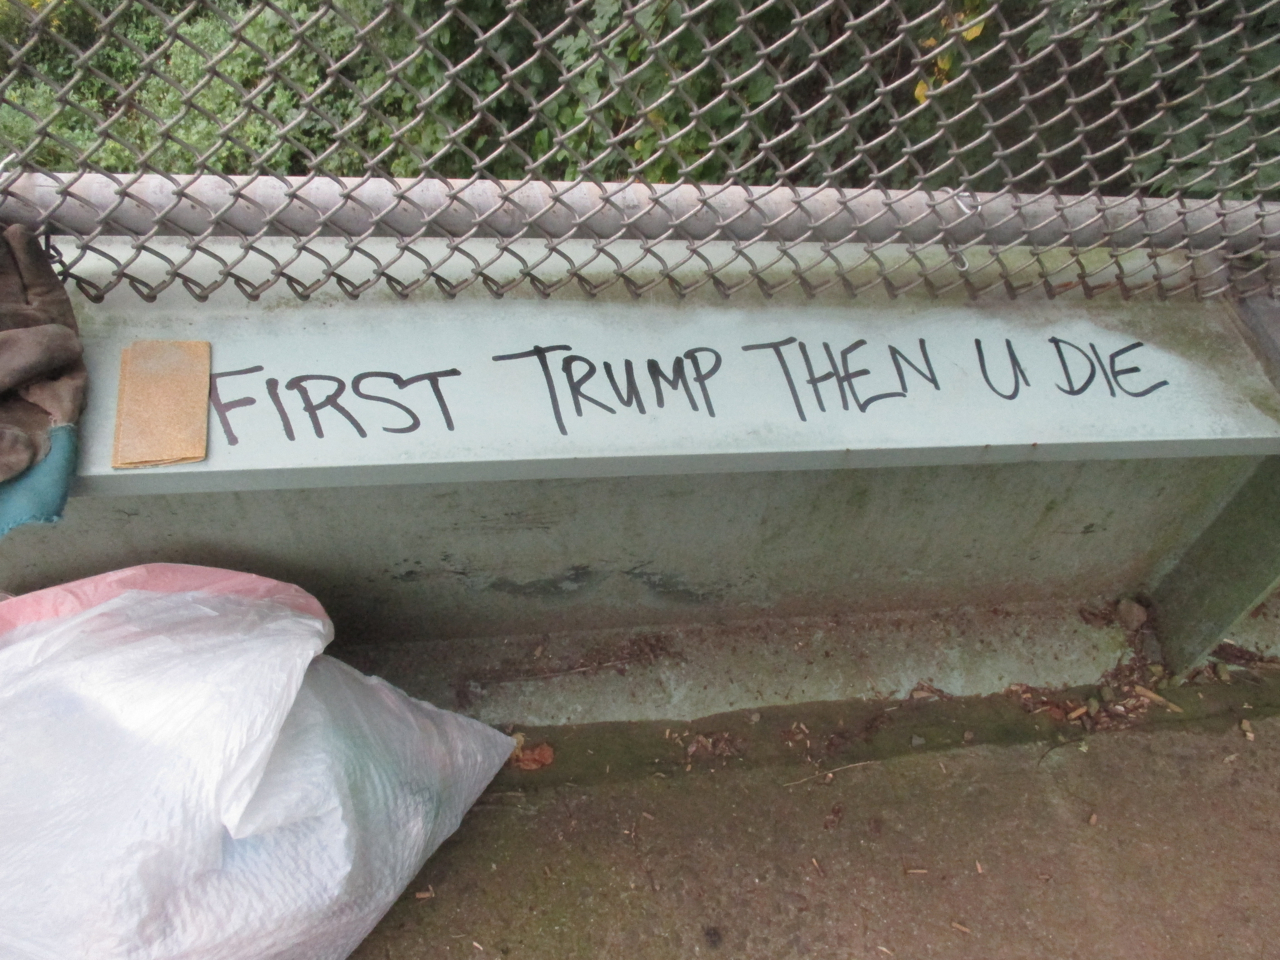 FIRST TRUMP THEN U DIE